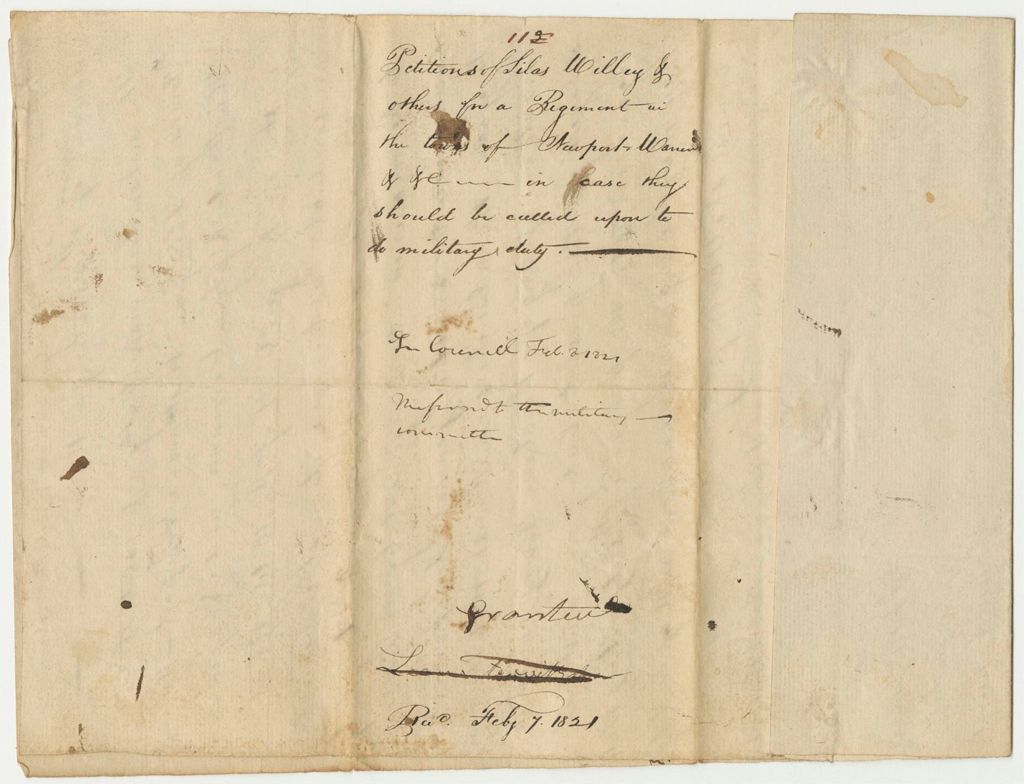 112
Petitions of Silas Willey &
others for a Regiment in
the towns of Newport Warren
& &c in case they
should be called upon to
do military duty.
In Council Feb. 2 1821
Referred to the military
committee
Granted
Leave
Recd. Feby 7. 1821